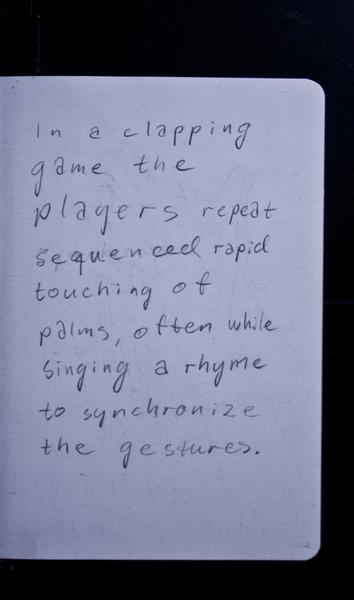 In a clapping
game the
players repeat
sequenced rapid
touching of
palms, often while
singing a rhyme
to synchronize
the gestures.